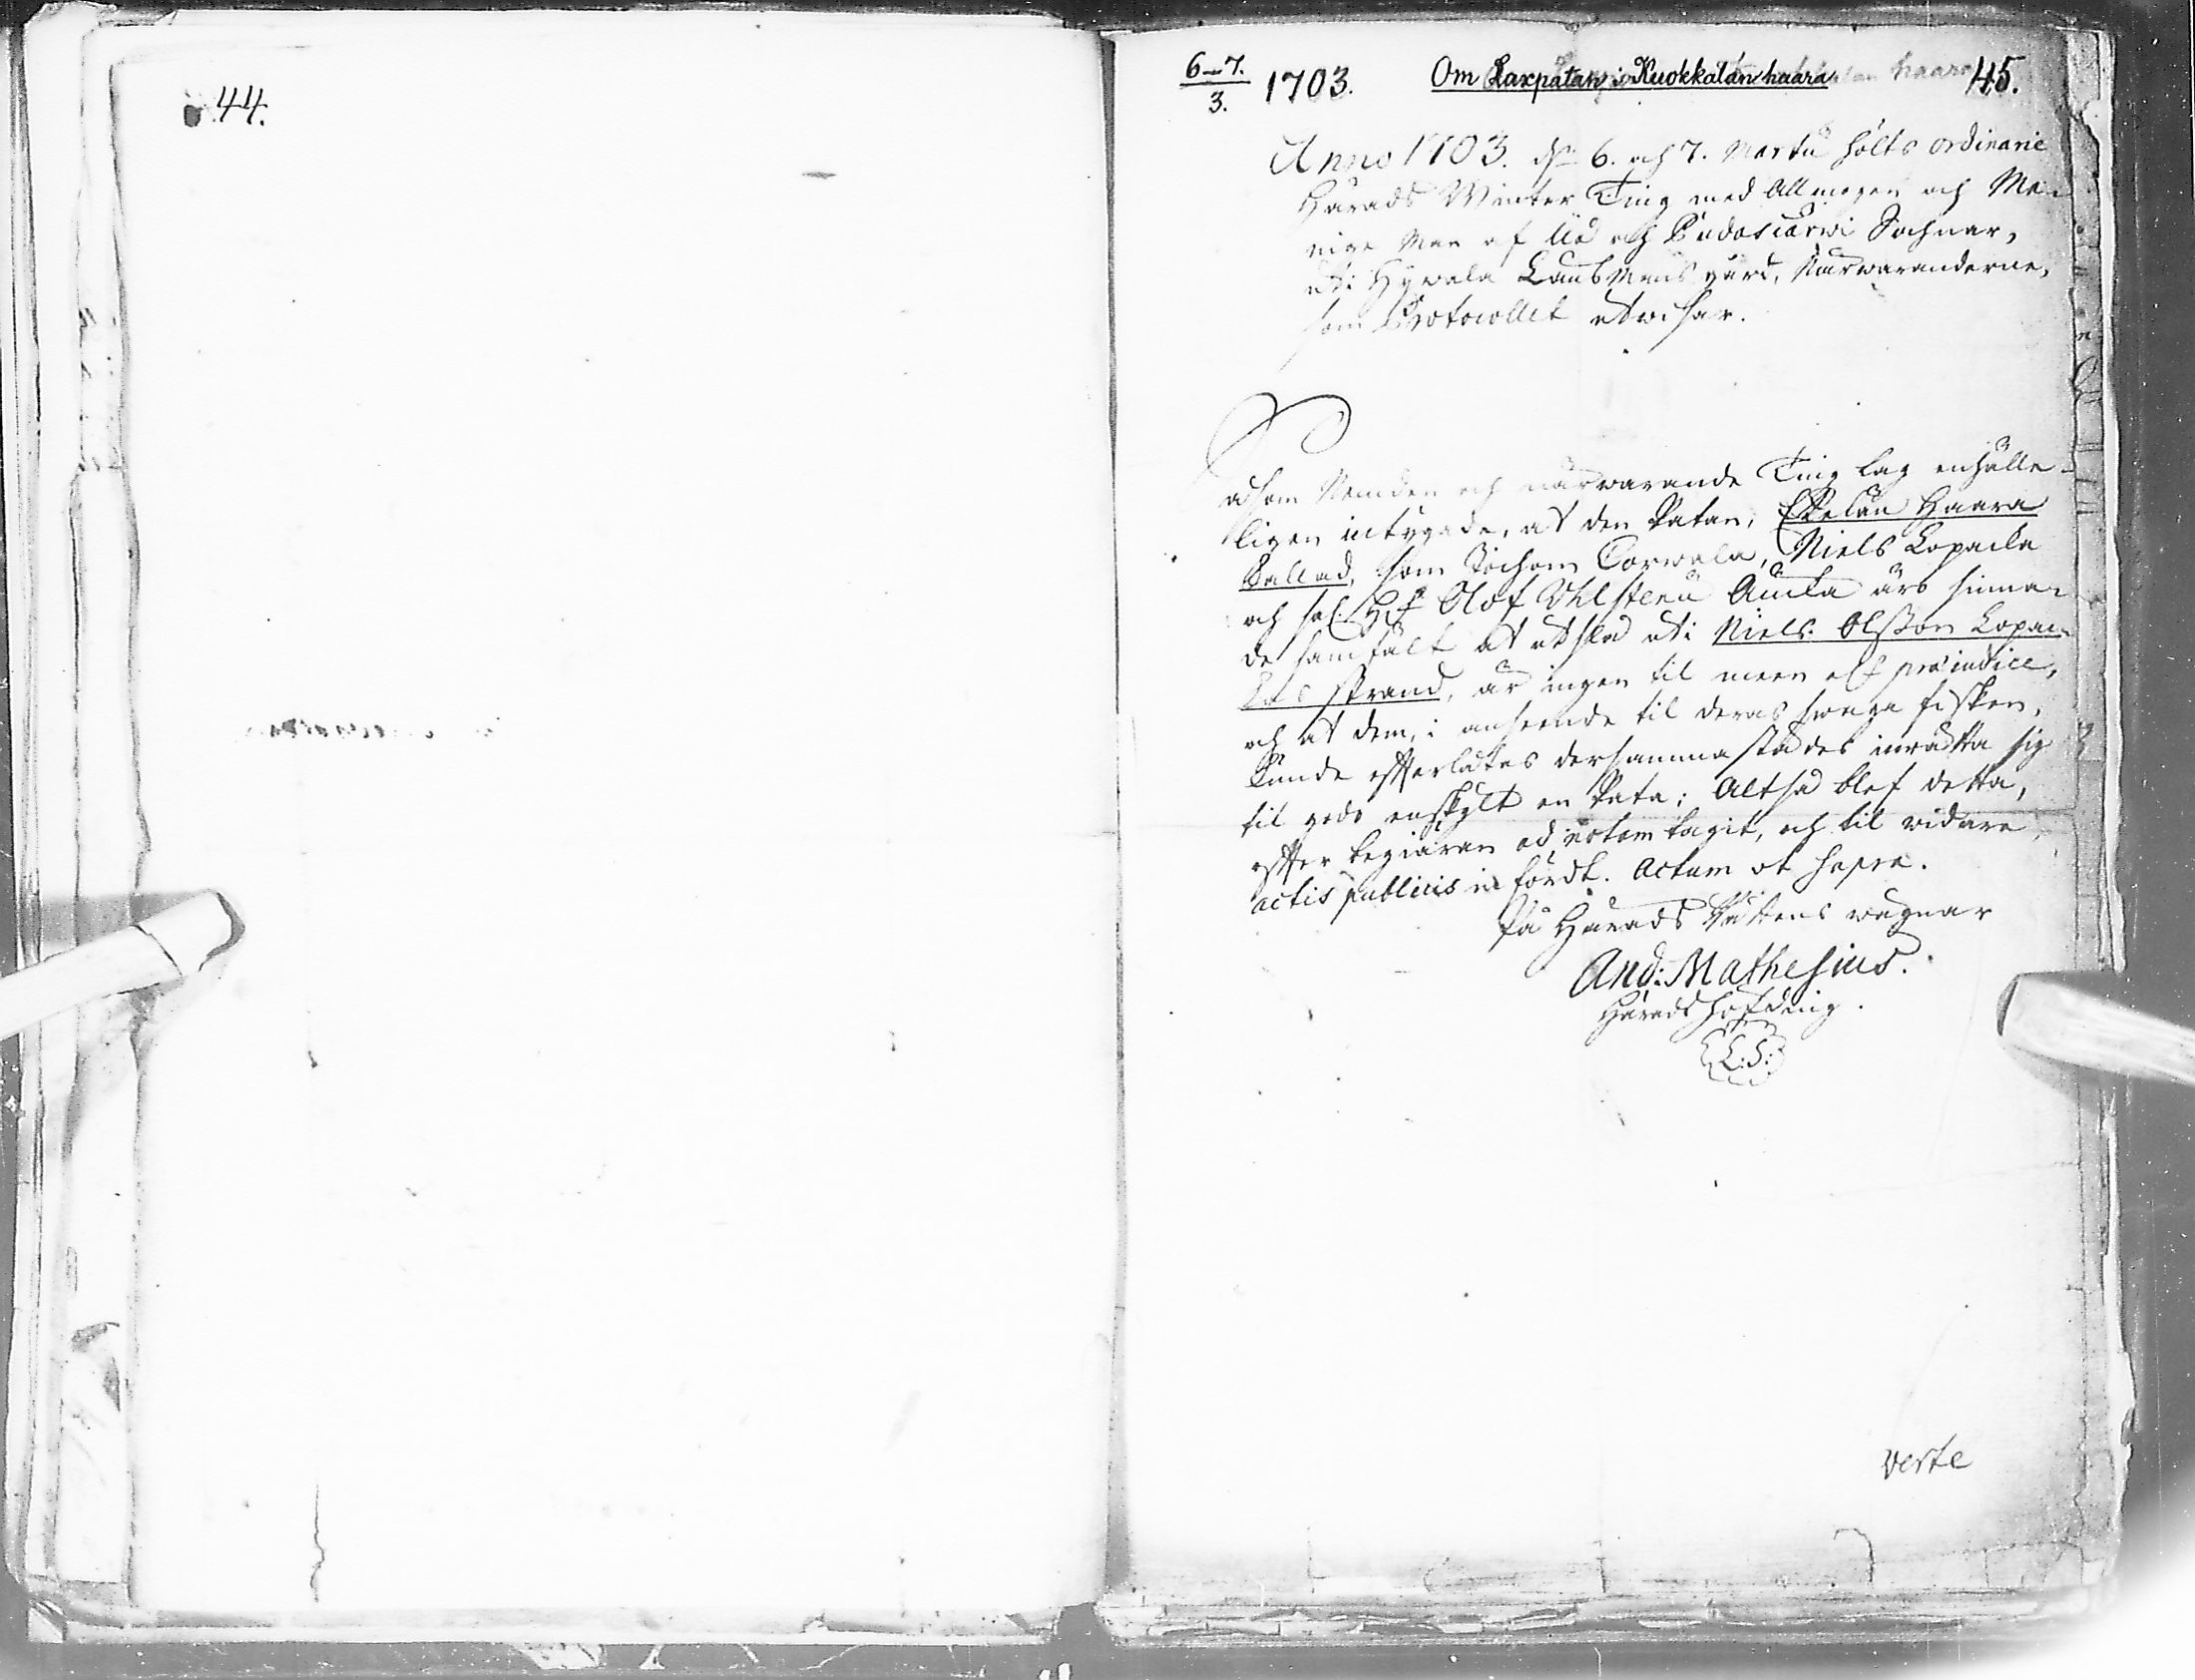 44.
6-7.
3. 1703. Om Laxpatan i Kuokkalan haara 45.
Anno 1703. dn 6. och 7. Martii hölts ordinarie
Härads Winter Ting med Allmogen och Me-
nige Man af Iio och Pudasiärwi Sochnar,
uti Hywala Länsmans gård, Närwaranderne,
som Protocollet utwisar.
såsom Nemden och närwarande Ting lag enhälle-
ligen intygade, at den Patan, Haara
kallad, som Jochom Corwala, Niels Lopacka
och sal. Hr Olof Uhlstenii Äncka äro sinna-
de samfält at utslå uti Niels Olsson Lopac-
kas strand, är ingen til meen el præiudice,
och at dem, i anseende til deras swaga fisken,
kunde efterlåtas dersammastädes inrätta sig
til godo enskylt en Pata; Altså blef detta,
efter begiäran ad notam tagit, och til widare,
actis publicis infördt. Actum ut supra.
På Härads Rättens wägnar
And: Mathesius.
Häradshöfding.
L:S:
verte